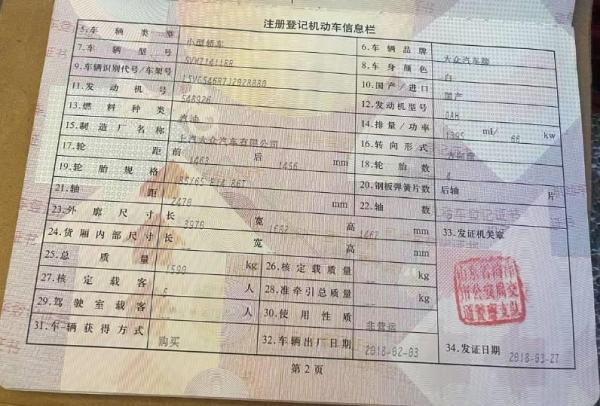 注册登记机动车信息栏
5.车辆类型 小型轿车 6.车辆品牌 大众汽车牌
7.车辆型号 SVW71411BR 8.车身颜色 白
9.车辆识别代号/车架号 10.国产/进口 国产
11.发动机号 548926 12.发动机型号 DAH
13.燃料种类 汽油 14.排量/功率 1395 ml/ 66 kw
15.制造厂名称 上汽大众汽车有限公司 16.转向形式
17.轮距 前 1463 后 1456 mm 18.轮胎数 4
19.轮胎规格 20.钢板弹簧片数 后轴 片
21.轴距 2470 mm 22.轴数
23.外廓尺寸 长 3970 宽 1682 高 1462 mm 33.发证机关章
24.货厢内部尺寸 长 宽 高 mm
25.总质量 1590 kg 26.核定载质量 kg
27.核定载客 5 人 28.准牵引总质量 kg
29.驾驶室载客 人 30.使用性质 非营运
31.车辆获得方式 购买 32.车辆出厂日期 2018-02-03 34.发证日期 2018-03-27
第2页